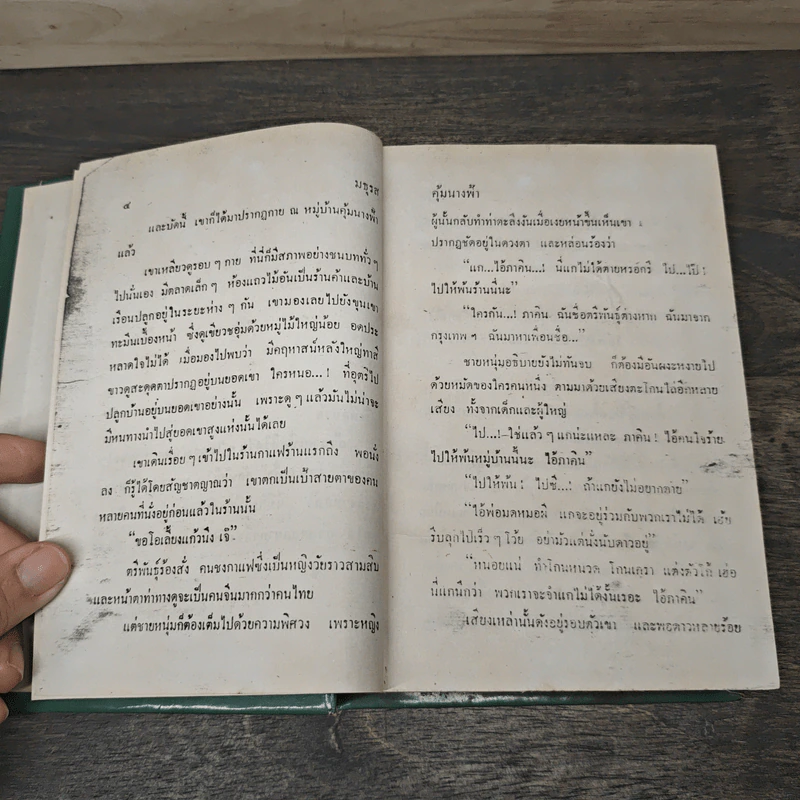 ๔
มธุรส
และบัดนี้ เขาก็ได้มาปรากฏกาย ณ หมู่บ้านคุ้มนางฟ้า
แล้ว
เขาเหลียวดูรอบ ๆ กาย ที่นี่ก็มีสภาพอย่างชนบททั่ว ๆ
ไปนั่นเอง มีตลาดเล็กๆ ห้องแถวไม้อันเป็นร้านค้าและบ้าน
เรือนปลูกอยู่ในระยะห่าง ๆ กัน เขามองเลยไปยังขุนเขา
ทะมึนเบื้องหน้า ซึ่งดูเขียวชอุ่มด้วยหมู่ไม้ใหญ่น้อย อดประ
หลาดใจไม่ได้ เมื่อมองไปพบว่า มีคฤหาสน์หลังใหญ่ทาสี
ขาวดูสะดุดตาปรากฏอยู่บนยอดเขา ใครหนอ...! ที่อุตริไป
ปลูกบ้านอยู่บนยอดเขาอย่างนั้น เพราะดู ๆ แล้วมันไม่น่าจะ
มีหนทางนำไปสู่ยอดเขาสูงแห่งนั้นได้เลย
เขาเดินเรื่อย ๆ เข้าไปในร้านกาแฟร้านแรกถึง พอนั่ง
ลง ก็รู้ได้โดยสัญชาตญาณว่า เขาตกเป็นเป้าสายตาของคน
หลายคนที่นั่งอยู่ก่อนแล้วในร้านนั้น
“ขอโอเลี้ยงแก้วนึง เจ๊”
ตรีพันธุ์ร้องสั่ง คนชงกาแฟซึ่งเป็นหญิงวัยราวสามสิบ
และหน้าตาท่าทางดูจะเป็นคนจีนมากกว่าคนไทย
แต่ชายหนุ่มก็ต้องเต็มไปด้วยความพิศวง เพราะหญิง
คุ้มนางฟ้า
ผู้นั้นกลับทำท่าตะลึงงันเมื่อเงยหน้าขึ้นเห็นเขา
ปรากฏชัดอยู่ในดวงตา และหล่อนร้องว่า
“แก...ไอ้ภาคิน...! นี่แกไม่ได้ตายหรอกรึ ไป...ไป๊!
ไปให้พ้นร้านนี้นะ”
“ใครกัน...! ภาคิน ฉันชื่อตรีพันธุ์ต่างหาก ฉันมาจาก
กรุงเทพ ฯ ฉันมาหาเพื่อนชื่อ...”
ชายหนุ่มอธิบายยังไม่ทันจบ ก็ต้องมีอันผงะหงายไป
ด้วยหมัดของใครคนหนึ่ง ตามมาด้วยเสียงตะโกนไล่อีกหลาย
เสียง ทั้งจากเด็กและผู้ใหญ่
“ไป...!–ใช่แล้ว ๆ แกน่ะแหละ ภาคิน! ไอ้คนใจร้าย
ไปให้พ้นหมู่บ้านนี้นะ ไอ้ภาคิน”
“ไปให้พ้น! ไปซี...! ถ้าแกยังไม่อยากตาย”
“ไอ้พ่อมดหมอผี แกจะอยู่ร่วมกับพวกเราไม่ได้ เฮ้ย
รีบลุกไปเร็ว ๆ โว้ย อย่ามัวแต่นั่งนับดาวอยู่”
“หนอยแน่ ทำโกนหนวด โกนเครา แต่งตัวโก้ เฮ่อ
นี่แกนึกว่า พวกเราจะจำแกไม่ได้งั้นเรอะ ไอ้ภาคิน”
เสียงเหล่านั้นดังอยู่รอบตัวเขา และพอดาวหลายร้อย